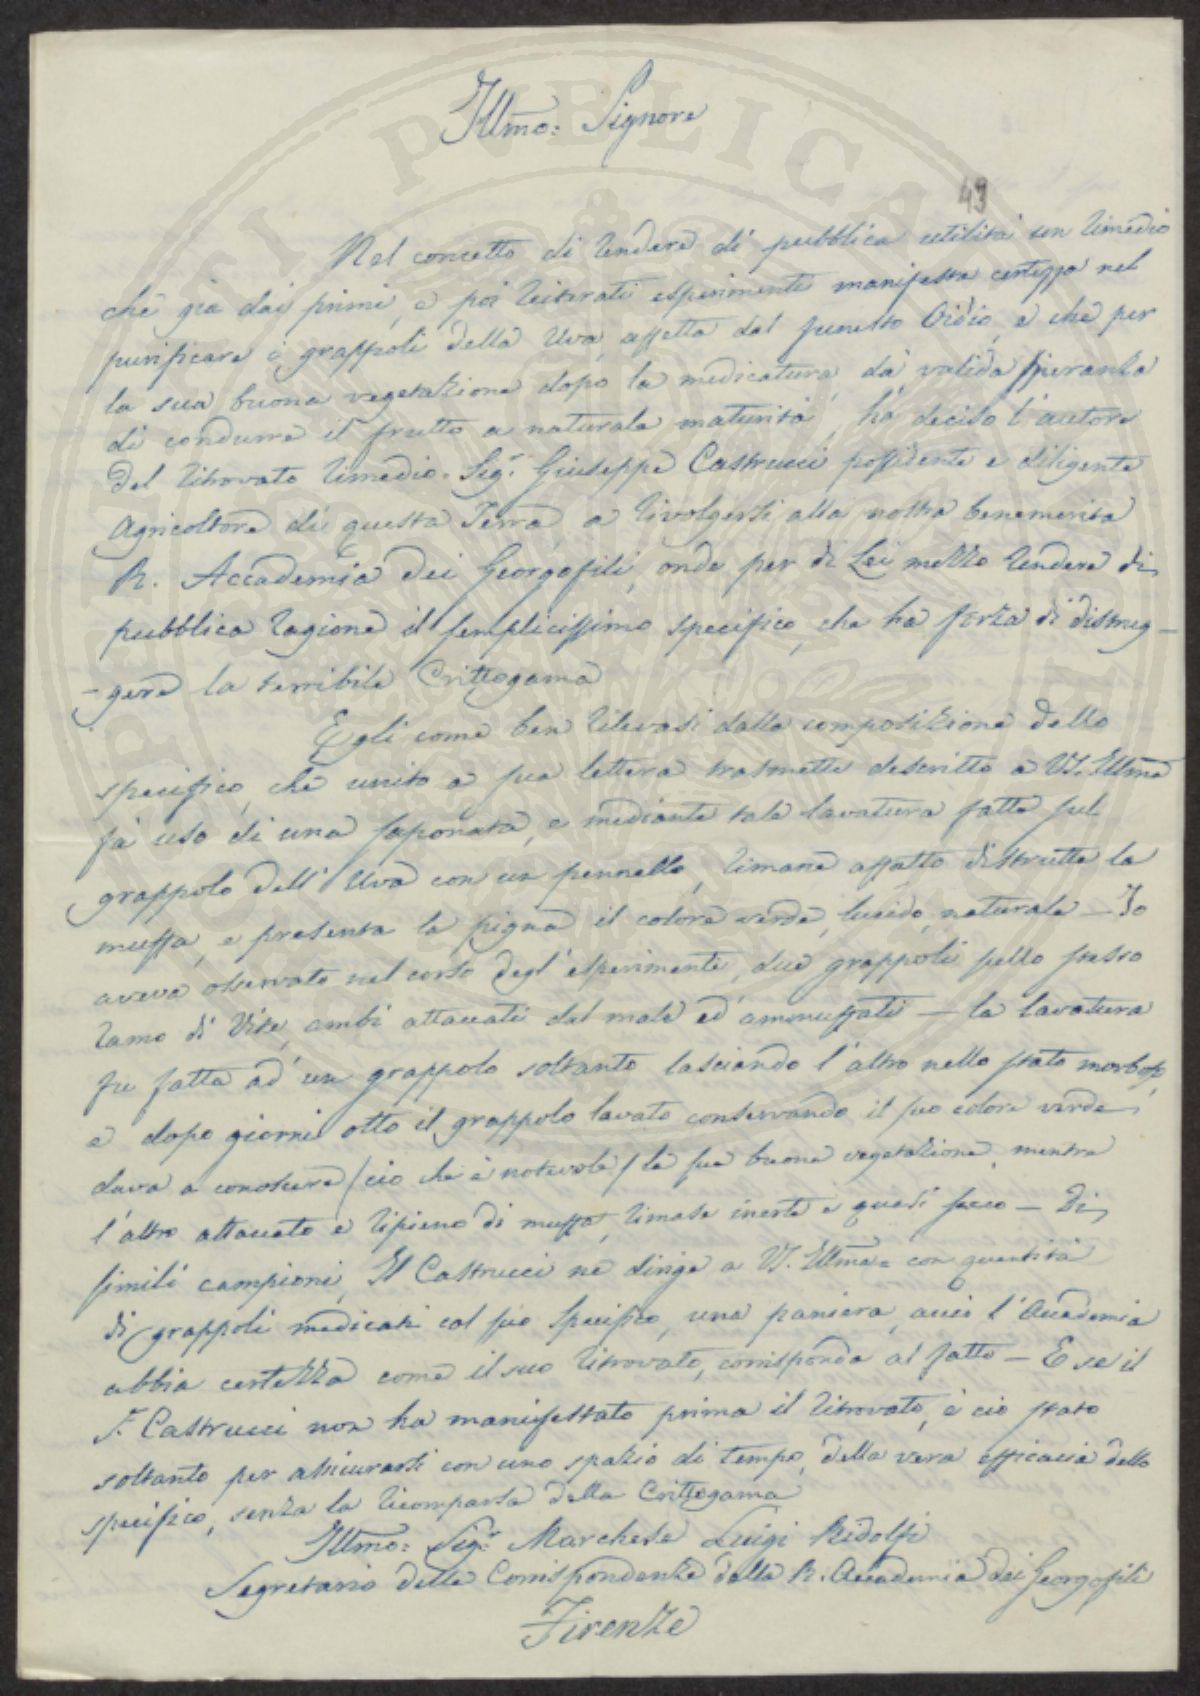 Illmo: Signore
43
Nel concetto di rendere di pubblica utilità un rimedio
che già dai primi, e poi reiterati esperimenti manifesta certezza nel
purificare i grappoli della Uva affetta dal funesto Oidio, e che per
la sua buona vegetazione dopo la medicatura, dà valida speranza
di condurre il frutto a naturale maturità, hà deciso l'autore
del ritrovato rimedio Sigr. Giuseppe Castrucci possidente e diligente
Agricoltore di questa Terra, a rivolgersi alla nostra benemerita
R. Accademia dei Georgofili, onde per di Lei mezzo rendere di
pubblica ragione il semplicissimo specifico, che ha forza di distrug-
-gere la terribile Crittogama
Egli come ben rilevasi dalla composizione dello
specifico, che unito a sua lettera trasmette descritto a VS. Illma
fà uso di una saponata, e mediante tale lavatura fatta sul
grappolo dell'Uva con un pennello, rimane affatto distrutta la
muffa, e presenta la pigna il colore verde, lucido, naturale — Io
aveva osservato nel corso degl'esperimenti, due grappoli sullo stesso
ramo di Vite, ambi attaccati dal male ed ammuffati — la lavatura
fu fatta ad un grappolo soltanto lasciando l'altro nello stato morboso,
e dopo giorni otto il grappolo lavato conservando il suo colore verde
dava a conoscere (ciò che è notevole) la sua buona vegetazione, mentre
l'altro attaccato e ripieno di muffa, rimase inerte e quasi secco — Di
simili campioni, Il Castrucci ne dirige a VS. Illma= con quantità
di grappoli medicati col suo specifico, una paniera, acciò l'Accademia
abbia certezza come il suo ritrovato, corrisponda al fatto — E se il
S. Castrucci non ha manifestato prima il ritrovato, è ciò stato
soltanto per assicurarsi con uno spazio di tempo, della vera efficacia dello
specifico, senza la ricomparsa della Crittogama
Illmo: Sigr. Marchese Luigi Ridolfi
Segretario delle Corrispondenze della R. Accademia dei Georgofili
Firenze